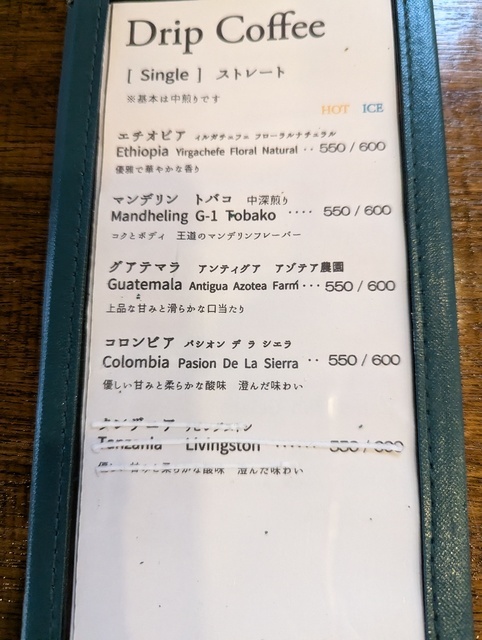 Drip Coffee
[ Single ] ストレート
※基本は中煎りです
HOT ICE
エチオピア イルガチェフェ フローラルナチュラル
Ethiopia Yirgachefe Floral Natural ·· 550 / 600
優雅で華やかな香り
マンデリン トバコ 中深煎り
Mandheling G-1 Tobako ···· 550 / 600
コクとボディ 王道のマンデリンフレーバー
グアテマラ アンティグア アゾテア農園
Guatemala Antigua Azotea Farm ··· 550 / 600
上品な甘みと滑らかな口当たり
コロンビア パシオン デ ラ シエラ
Colombia Pasion De La Sierra ·· 550 / 600
優しい甘みと柔らかな酸味 澄んだ味わい
タンザニア
Tanzania Livingston ······ 550 / 600
優しい甘みと柔らかな酸味 澄んだ味わい